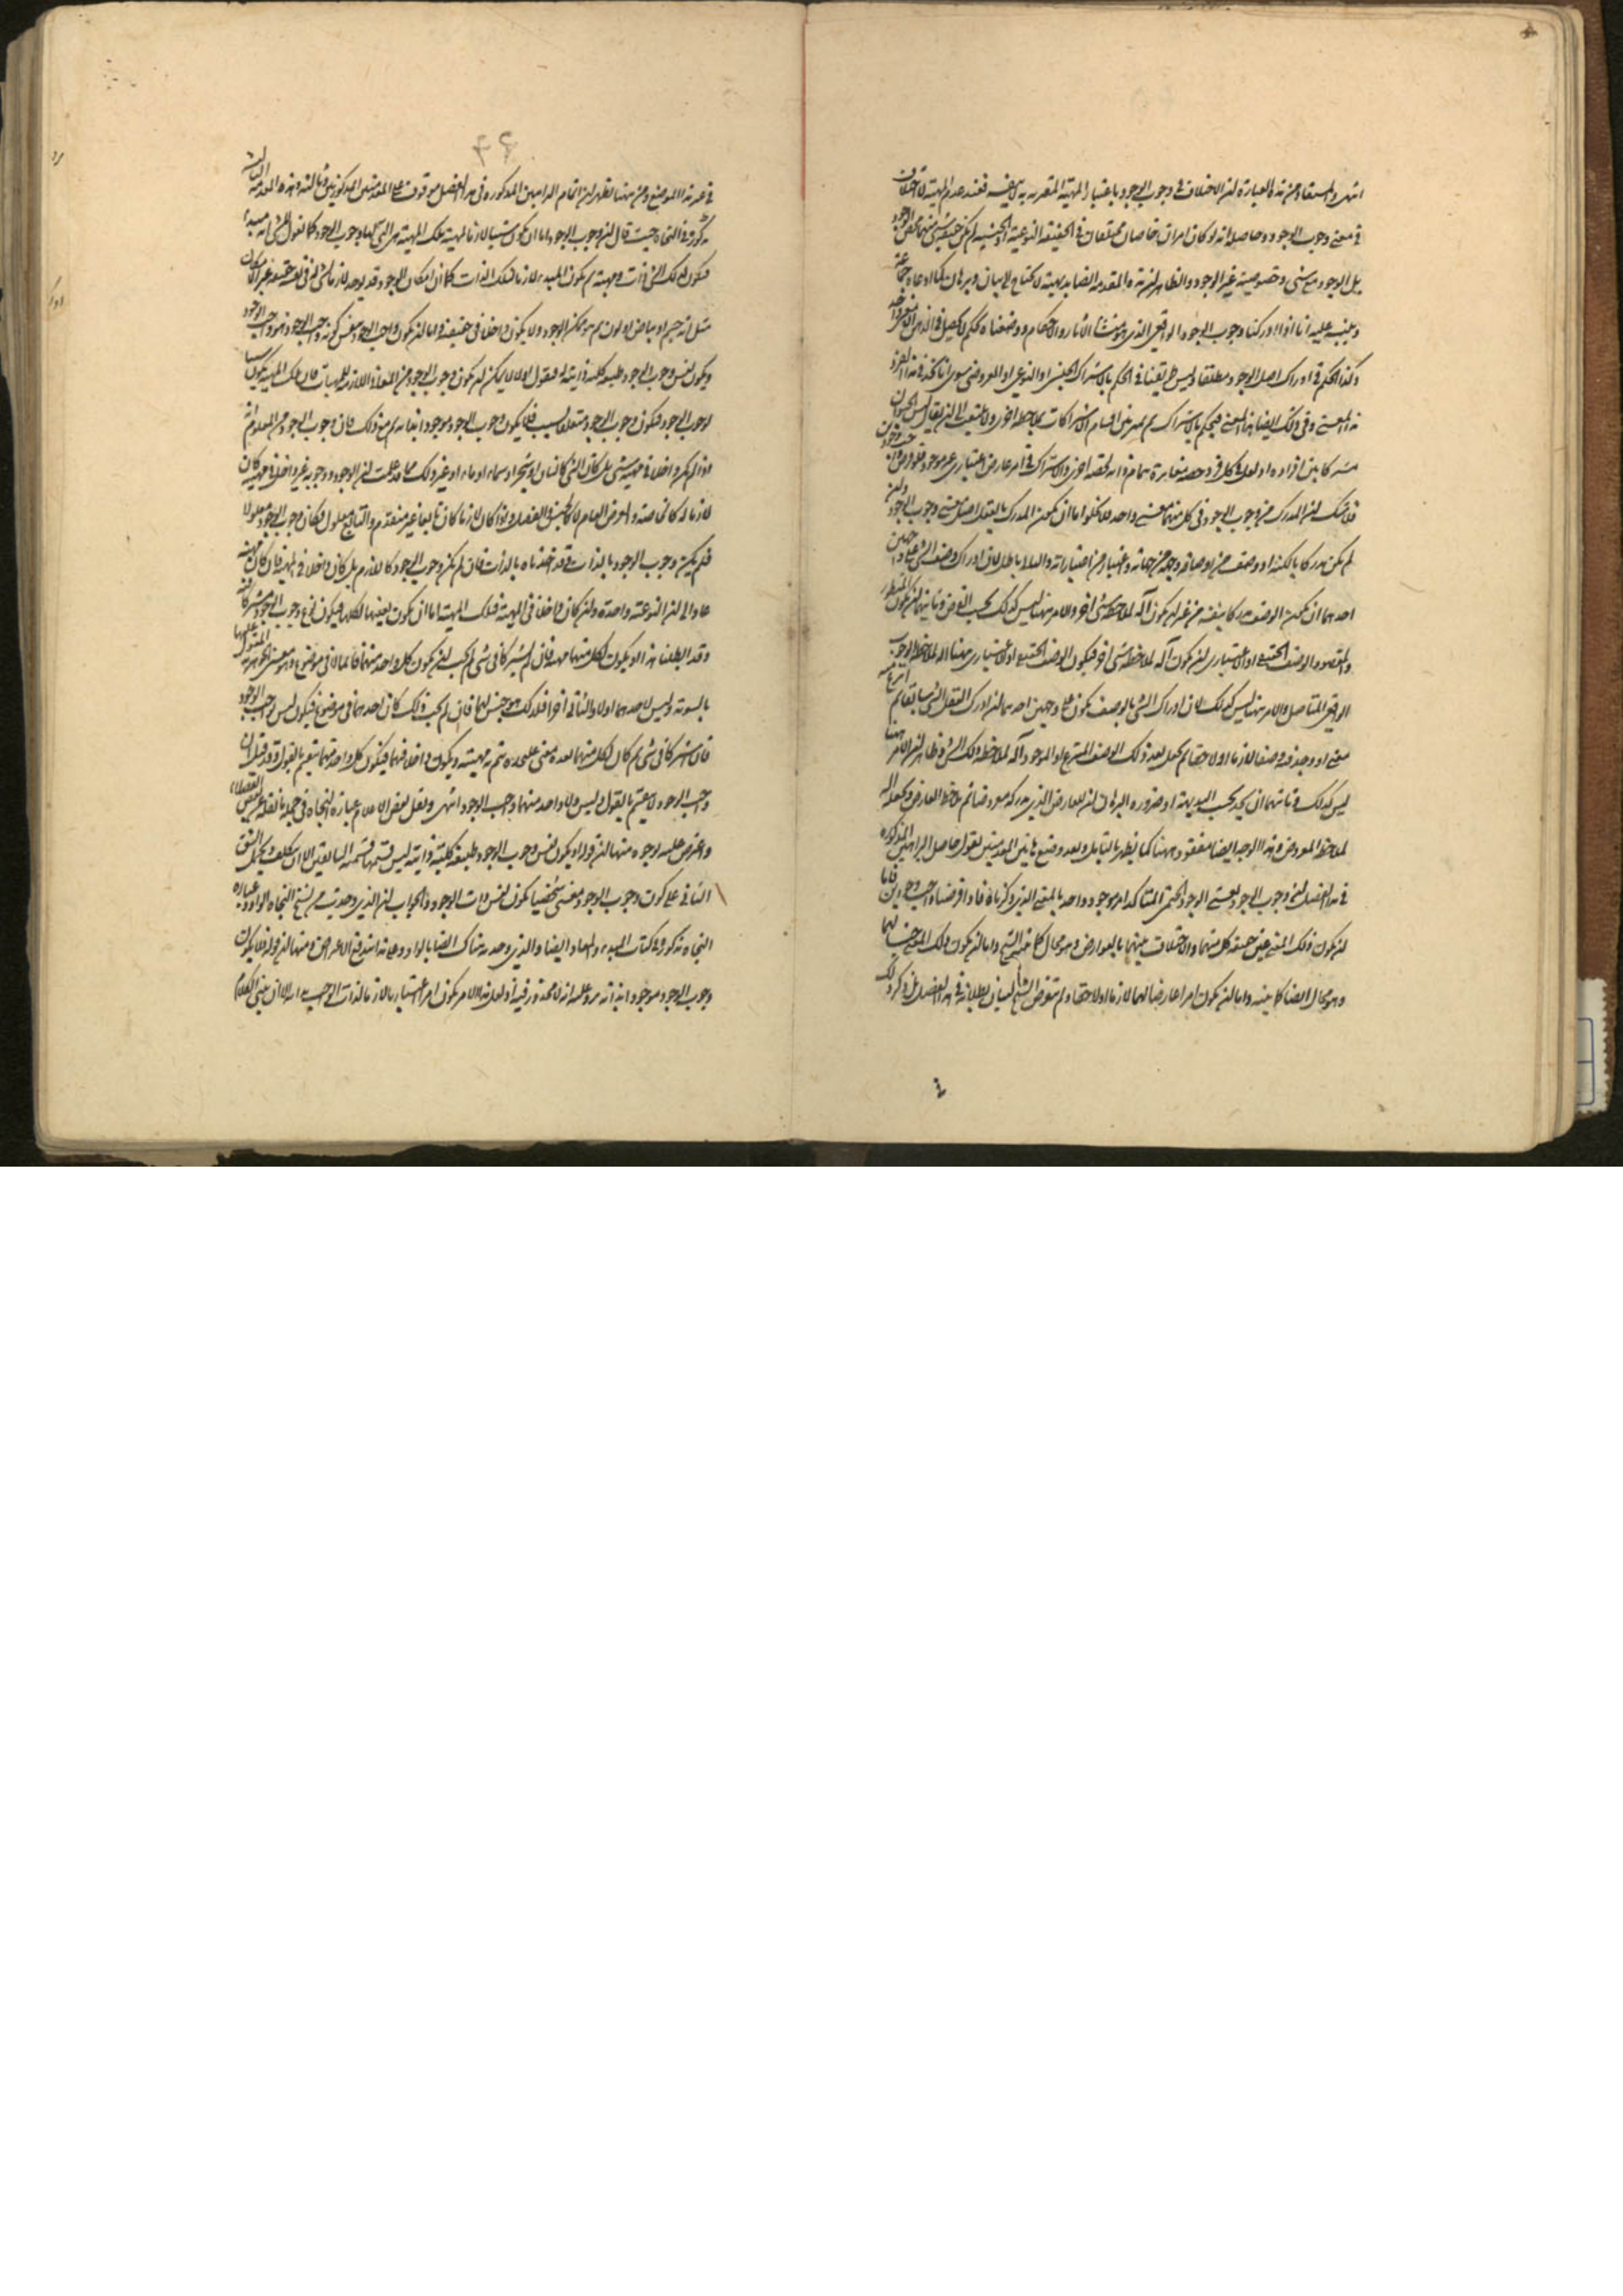 انتهى والمستفاد من هذه العبارة ان الاختلاف في وجوب الوجود باعتبار المهية المقترنة به لا بنفسه فعند عدم المهية لا اختلاف
في معنى وجوب الوجود وحاصله انه لو كان امران خاصان متفقان في الحقيقة النوعية او الجنسية لم يكن شيء منهما محض الوجود
بل الوجود مع شيء وخصوصية غير الوجود والظاهر ان هذه المقدمة ايضا بديهية لا تحتاج الى بيان وبرهان كما ادعاه جماعة
وينبه عليه انا اذا ادركنا وجوب الوجود الواقعي الذي هو منشأ الآثار والاحكام ووضعناه لحكم لا يحصل في الذهن الا معنى واحد
وكذا الحكم في ادراك اصل الوجود مطلقا وليس طريقنا في الحكم بالاشتراك الجنسي او النوعي او العروضي سوى انا نجد في هذا الفرد
هذا المعنى وفي ذلك ايضا هذا المعنى فيحكم بالاشتراك ثم نميز بين اقسام الاشتراكات بملاحظة اخرى ولا يلتفت الى ان يقال ليس الحيوان
مشتركا بين افراده اذ لعل في كل فرد حصة مغايرة بتمام ذاته لحصة اخرى والاشتراك في امر عارض اعتباري غير موجود
فلا شك ان المدرك من وجوب الوجود في كل منهما معنى واحد فلا يخلو اما ان يكون المدرك بالفعل اصل معنى وجوب الوجود وان
لم يكن مدركا بالكنه او وصف من اوصافه ووجه من جهاته واعتبار من اعتباراته والثاني باطل لان ادراك وصف الشيء على وجهين
احدهما ان يكون الوصف مدركا بنفسه من غير ان يكون آلة لملاحظة شيء آخر والامر هنا ليس كذلك بحسب الفرض وثانيهما ان يكون المنظور
والمقصود الوصف الحقيقي او الاعتباري ان يكون آلة لملاحظة شيء آخر فيكون الوصف الحقيقي او الاعتباري هنا آلة لملاحظة الوجوب
الواقعي المتاصل والامر هنا ليس كذلك لان ادراك الشيء بالوصف يكون على وجهين احدهما ان ادرك العقل الشيء سابقا ثم انتزع منه
معنى او وجد فيه وصفا لازما او لاحقا ثم يجعل بعد ذلك الوصف المنتزع او الموجود آلة لملاحظة ذلك الشيء وظاهر ان الامر هنا
ليس كذلك وثانيهما ان يجد بحسب البديهة او ضرورة البرهان ان للعارض الذي يدركه معروضا ثم يلاحظ العارض ويجعله آلة
لملاحظة المعروض وهذا الوجه ايضا مفقود ههنا كما يظهر بالتامل وبعد وضع هاتين المقدمتين نقول حاصل البراهين المذكورة
في هذا الفصل ان وجوب الوجود بمعنى الوجود الحتمي المتاكد امر موجود واحد بالمعنى الذي ذكرناه فاذا فرضناه واجب وجودين فاما
ان يكون ذلك المعنى عين حقيقة كل منهما والاختلاف بينهما بالعوارض وهو محال كما بينه الشيخ واما ان يكون ذلك المعنى جنسا لهما
وهو محال ايضا كما بينه واما ان يكون امرا عارضا لهما لازما او لاحقا ولم يتعرض الشيخ لبيان بطلانه في هذا الفصل بل ذكر ذلك
۴۶
في غير هذا الموضع ومن هنا يظهر ان اتمام البراهين المذكورة في هذا الفصل موقوف على المقدمتين المذكورتين وثالثة وهذه المقدمة الثالثة
مذكورة في النجاة حيث قال ان وجوب الوجود اما ان يكون شيئا لازما لمهية تلك المهية هي التي لها وجوب الوجود كما نقول للشيء انه مبدأ
فيكون لذلك الشيء ذات ومهية ثم يكون المبدء لازما لتلك الذات كما ان امكان الوجود قد يوجد لازما لشيء له في نفسه حقيقة غير الامكان
مثل انه جسم او بياض او لون ثم هو ممكن الوجود ولا يكون داخلا في حقيقته واما ان يكون واجب الوجود بنفس كونه واجب الوجود هو واجب الوجود
ويكون نفس وجوب الوجود طبيعة كلية ذاتية له فنقول اولا لا يمكن ان يكون وجوب الوجود من المعاني اللازمة للمهيات فان تلك المهية تكون سببا
لوجوب الوجود فيكون وجوب الوجود متعلقا بسبب فلا يكون وجوب الوجود موجودا بذاته ثم مع ذلك فان وجوب الوجود من المعلوم انه
اذا لم يكن داخلا في مهية شيء بل كان الشيء كانسان او شجر او سماء او ماء او غير ذلك مما قد علمت ان الوجود ووجوبه غير داخل في مهيته كان
لازما له كالخاصة والعرض العام لا كالجنس والفصل واذا كان لازما كان تابعا غير متقدم والتابع معلول فكان وجوب الوجود معلولا
فلم يكن وجوب الوجود بالذات وقد اخذناه بالذات فان لم يكن وجوب الوجود كاللازم بل كان داخلا في المهية فان كان مهية
عاد الى ان النوعية واحدة وان كان داخلا في المهية فتلك المهية اما ان تكون بعينها لكليهما فيكون نوع وجوب الوجود مشتركا فيه
وقد ابطلنا هذا او يكون لكل منهما مهية فان لم يشتركا في شيء لم يجب ان يكون كل واحد منهما قائما لا في موضوع وهو معنى الجوهرية المقول عليهما
بالسوية وليس لاحدهما اولا وللثاني آخرا فلذلك هو جنس لهما فان لم يجب ذلك كان احدهما في موضوع فيكون ليس بواجب الوجود
فان اشتركا في شيء ثم كان لكل منهما بعده معنى على حدة يتم به مهيته ويكون داخلا فيهما فيكون كل واحد منهما ينقسم بالقول وقد قيل ان
واجب الوجود لا ينقسم بالقول وليس ولا واحد منهما واجب الوجود انتهى ونقل بعض الاعلام عبارة النجاة في جملة ما نقله
واعترض عليه بوجوه منها ان قوله او يكون نفس وجوب الوجود طبيعة كلية ذاتية ليس قسمها قسمة السابقين الا ان يتكلف ويحمل الشق
الثاني على كون وجوب الوجود معنى شخصيا يكون نفس ذات الوجود والجواب ان الذي وجدت من نسخ النجاة الواو وعبارة
النجاة مذكورة في كتاب المبدء والمعاد ايضا والذي وجدته هناك ايضا بالواو وعلى هذا اندفع الاعتراض ومنها ان قوله فلا يكون
وجوب الوجود موجودا بذاته يرد عليه انه لا محذور فيه اذ لعل هذا الامر يكون امرا اعتباريا لازما لذات الواجب